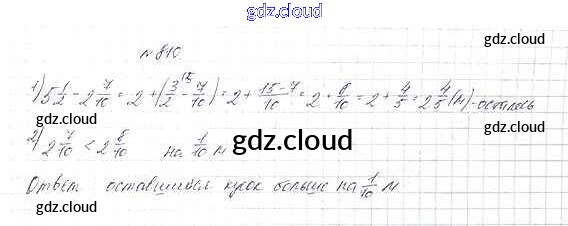 gdz.cloud
№ 810
gdz.cloud gdz.cloud
1) 5 1/2 - 2 7/10 = 2 + (3/2 - 7/10) = 2 + 15-7/10 = 2 + 8/10 = 2 + 4/5 = 2 4/5 (м) - осталось
gdz.cloud gdz.cloud
2) 2 7/10 < 2 8/10 на 1/10 м
gdz.cloud
Ответ оставшийся кусок больше на 1/10 м
gdz.cloud gdz.cloud